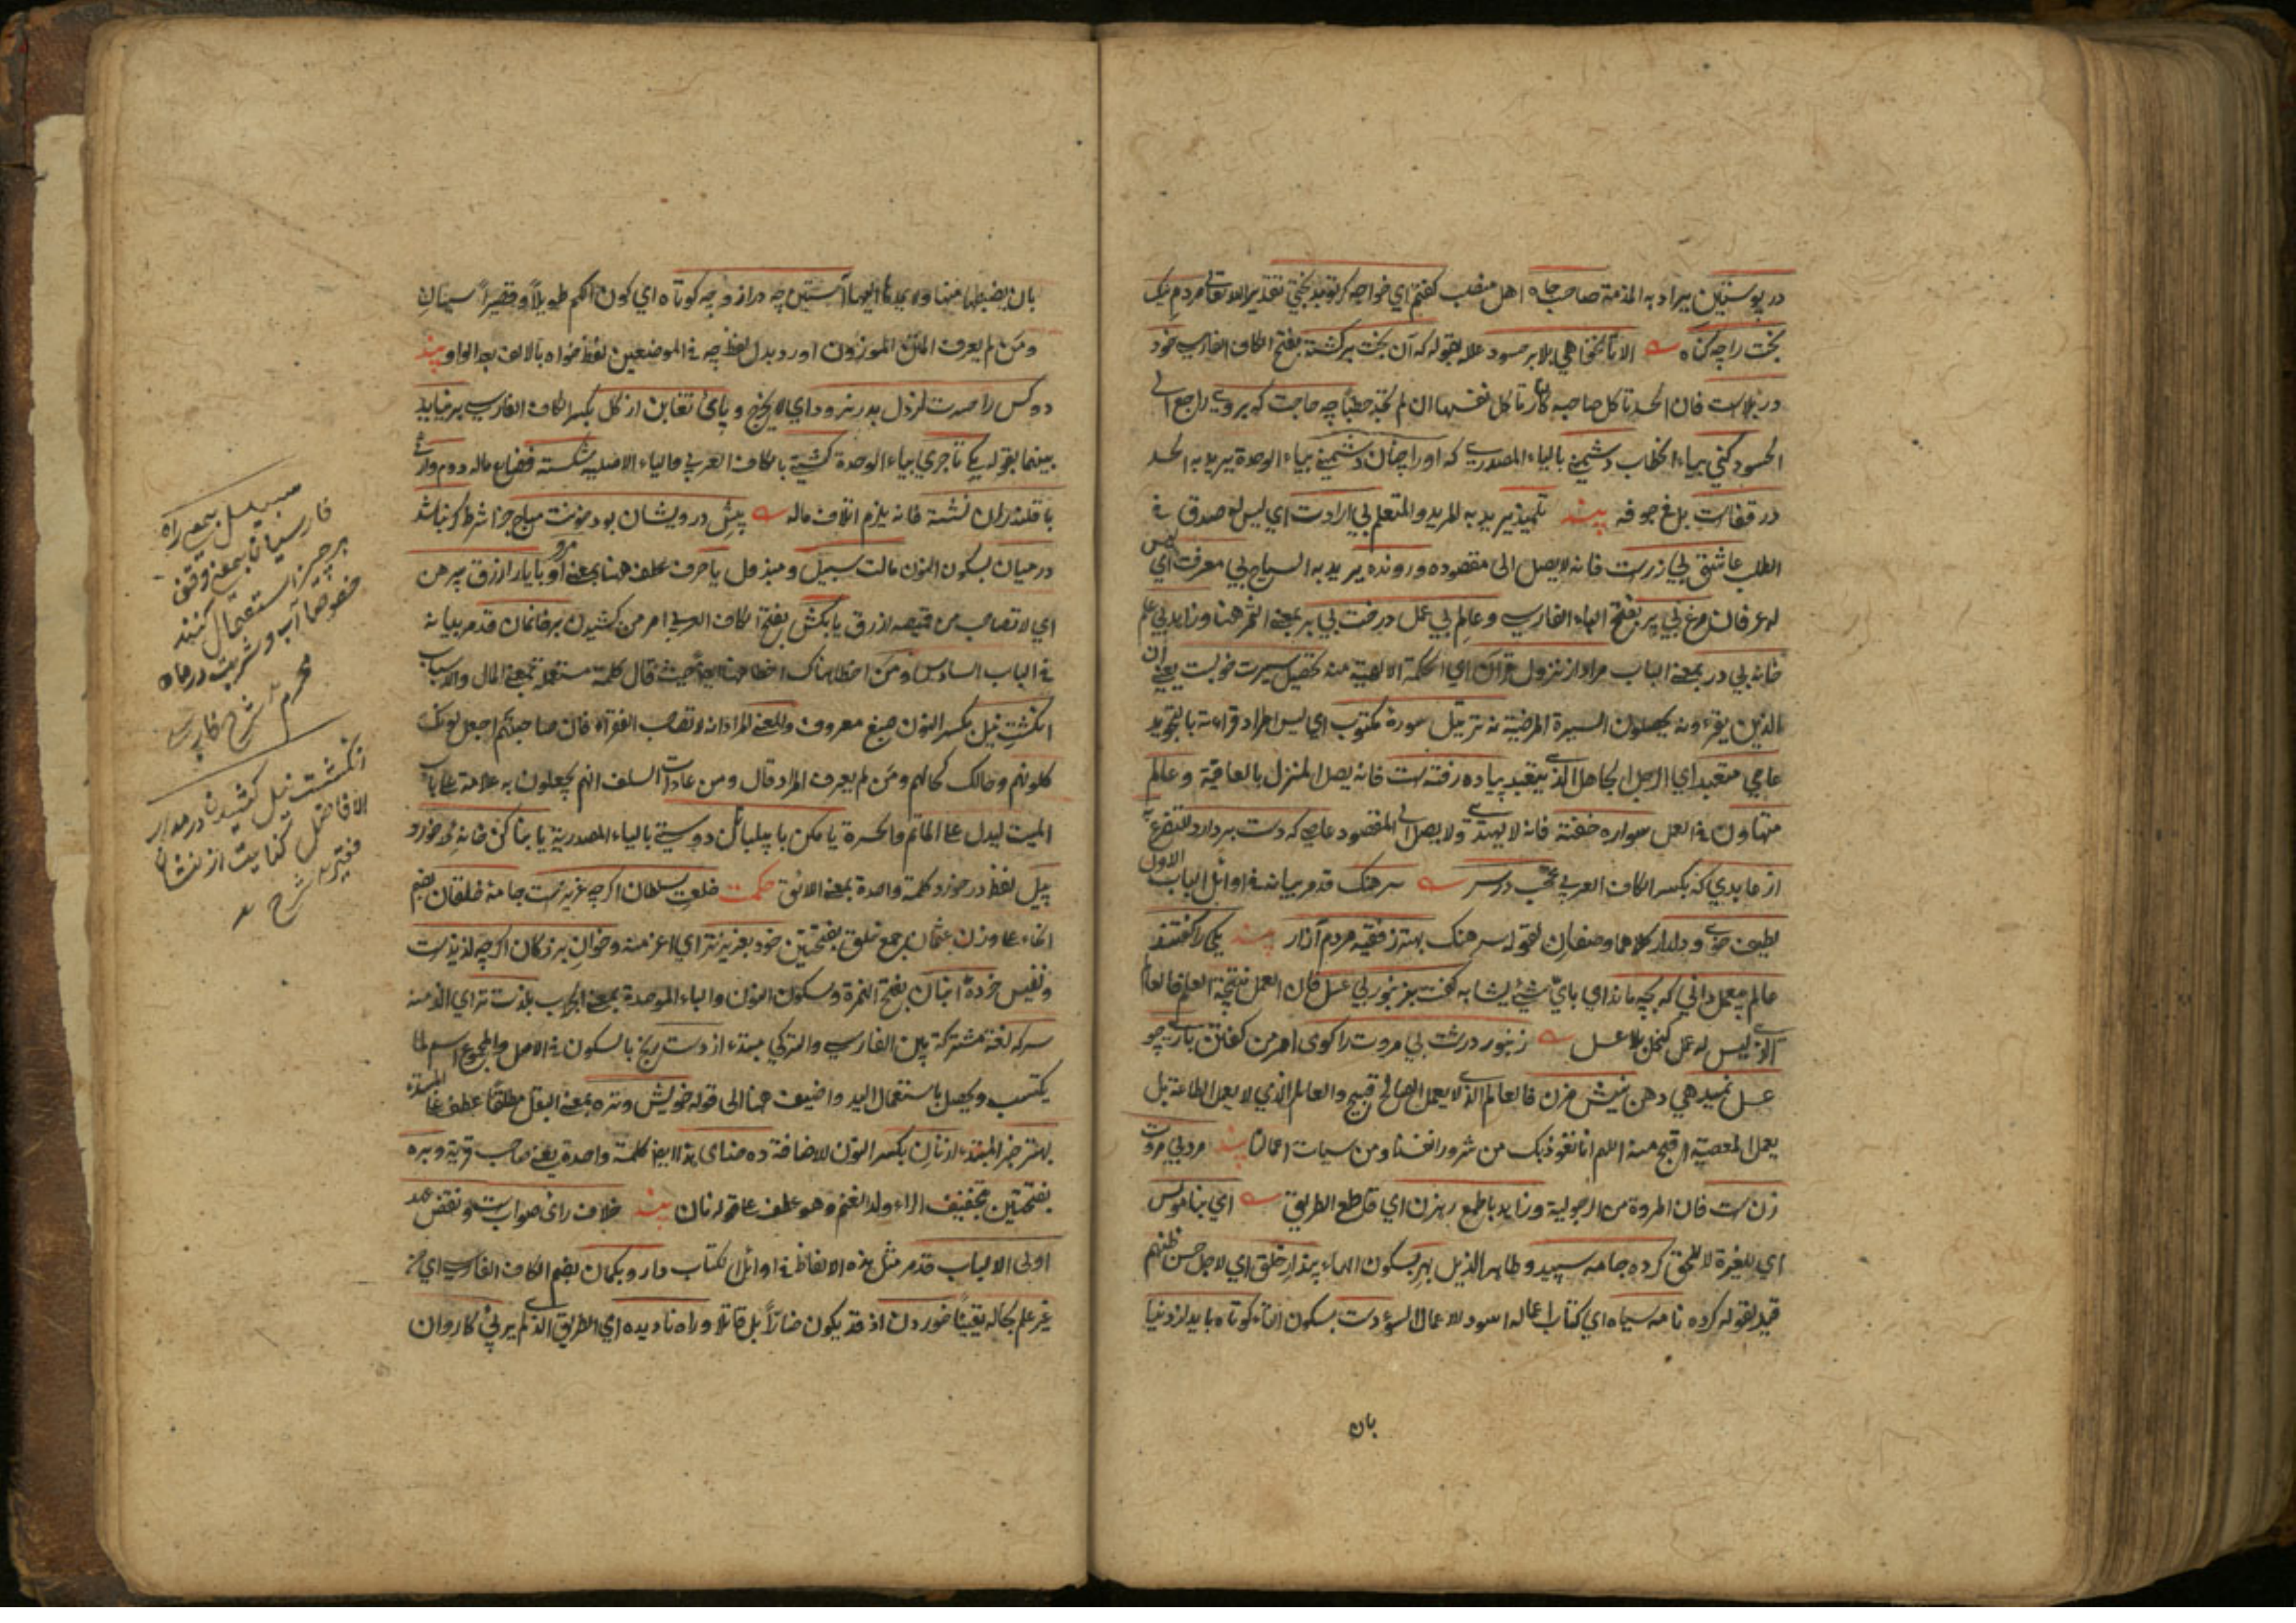 در پوستین يراد به المذمة صاحب جاه اهل منصب كفتم اي خواجه كر تو بدبختي بتقدير الله تعالى مردم نيك
بخت را چه كناه الا تا نخواهي بلا بر حسود علله بقوله كه آن بخت بركشته بفتح الكاف الفارسي خود
در بلاست فان الحسد تأكل صاحبه كالنار تأكل نفسها ان لم تجد حطبا چه حاجت كه بر وى راجع الى
الحسود كني بياء الخطاب دشمني بالياء المصدري كه او را چنان دشمني بياء الوحدة يريد به الحسد
در قفاست بلغ جوفه پند تلميذ يريد به المريد والمتعلم بي ارادت اي ليس له صدق في
الطلب عاشق بي زرست فانه لا يصل الى مقصوده ورونده يريد به السياح بي معرفت اي ليس
له عرفان مرغ بي پر بفتح الباء الفارسي وعالم بي عمل درخت بي بر بمعنى الثمر هنا وزاهد بي علم
خانه بي در بمعنى الباب مراد از نزول قرآن اي الحكمة الالهية منه تحصيل سيرت خوبست يعني ان
الذين يقرءونه يحصلون السيرة المرضية نه ترتيل سورة مكتوب اي ليس المراد قراءته بالتجويد
عامي متعبد اي الرجل الجاهل الذي يتعبد پياده رفته است فانه يصل المنزل بالعاقبة وعالم
متهاون في العمل سواره خفته فانه لا يهتدي ولا يصل الى المقصود عاصي كه دست بردارد للتضرع به
از عابدي كه بكسر الكاف العربي عجب در سر سرهنك قد مر بيانه في اوائل الباب الاول
لطيف خوى ودلدار كلاهما وصفان لقوله سرهنك بهتر ز فقيه مردم آزار پند يكي را كفتند
عالم بيعمل داني كه بچه ماند اي باي شيء يشابه كفت بزنبور بي عسل فان العمل نتيجة العلم فالعالم
الذي ليس له عمل كنحل بلا عسل زنبور درشت بي مروت را كوى امر من كفتن باري چو
عسل نميدهي دهن نيش مزن فالعالم الذي لا يعمل الصالح قبيح والعالم الذي لا يعمل الطاعة بل
يعمل المعصية اقبح منه اللهم انا نعوذ بك من شرور انفسنا ومن سيئات اعمالنا پند مرد بي مروت
زن است فان المروة من الرجولية وزاهد با طمع رهزن اي قاطع الطريق اي بناموس
اي للغيرة لا للحق كرده جامه سپيد وطاهر الذيل بهر بسكون الهاء پندار خلق اي لاجل حسن ظنهم
قيد لقوله كرده نامه سياه اي كتاب اعماله اسود للاعمال السوء دست بسكون التاء كوتاه بايد از دنيا
بان
بان يضبطها منها ولا يمدها اليها آستين چه دراز وچه كوتاه اي كون الكم طويلا وقصيرا سيان
ومن لم يعرف الموزون اورد بدل لفظ چه في الموضعين لفظ خواه بالالف بعد الواو پند
دو كس را حسرت از دل بدر نرود اي لا يخرج وپاى تغابن از كل بكسر الكاف الفارسي بر نيايد
بينهما بقوله يكي تاجري بياء الوحدة كشتي بالكاف العربي والياء الاصليه شكسته فضاع ماله دوم وارثي
با قلندران نشسته فانه يلزم اتلاف ماله پيش درويشان بود خونت مباح جزا شرط كر نباشد
در ميان بسكون النون مالت سبيل ومبذول يا حرف عطف هنا بمعنى او مرو با يار ازرق پيرهن
اي لا تصاحب من قميصه ازرق يا بكش بفتح الكاف العربي امر من كشيدن بر خانمان قد مر بيانه
في الباب السادس ومن اخطأ هناك اخطأ هنا ايضا حيث قال كلمة مستعملة بمعنى المال والاسباب
انكشت نيل بكسر النون صبغ معروف والمعنى المراد انه لا تصاحب الفقراء فان صاحبتهم اجعل لونك
كلونهم وحالك كحالهم ومن لم يعرف المراد قال ومن عادات السلف انهم يجعلون به علامة على باب
الميت ليدل على الماتم والحسرة يا مكن با پيلبانان دوستي بالياء المصدرية يا بنا كن خانه درخورد
پيل لفظ درخورد كلمة واحدة بمعنى الائق حكمت خلعت سلطان اكرچه عزيزست جامهٔ خلقان بضم
الخاء على وزن عثمان جمع خلق بفتحتين خود بعزيز تر اي اعز منه وخوان بزركان اكرچه لذيذست
ونفيس خردهٔ انبان بفتح الهمزة وسكون النون والباء الموحدة بمعنى الجراب بلذت تر اي الذ منه
سركه لغة مشتركة بين الفارسي والتركي مبتدء از دست رنج بالسكون في الاصل والمجموع اسم لما
يكتسب ويحصل باستعمال اليد واضيف هنا الى قوله خويش وتره بمعنى البقل مطلقا عطف على المبتدء
بهتر خبر المبتدء از نان بكسر النون للاضافة ده خداى هذا ايضا كلمة واحدة يعني صاحب قرية وبره
بفتحتين بتخفيف الراء ولد الغنم وهو عطف على قوله نان پند خلاف راى صوابست ونقض عهد
اولى الالباب قد مر مثل هذه الالفاظ في اوائل الكتاب دارو بكمان بضم الكاف الفارسي اي من
غير علم بحاله يقينا خوردن اذ قد يكون ضارا بل قاتلا وراه ناديده اي الطريق الذي لم ير بي كاروان
سبيل بمعنى راه
فارسيان بمعنى وقف
هر چيز استعمال كنند
خصوصا آب وشربت در ماه
محرم شرح فارسي
انكشت نيل كشيدن در مدار
الافاضل كنايت از نشان
شرح